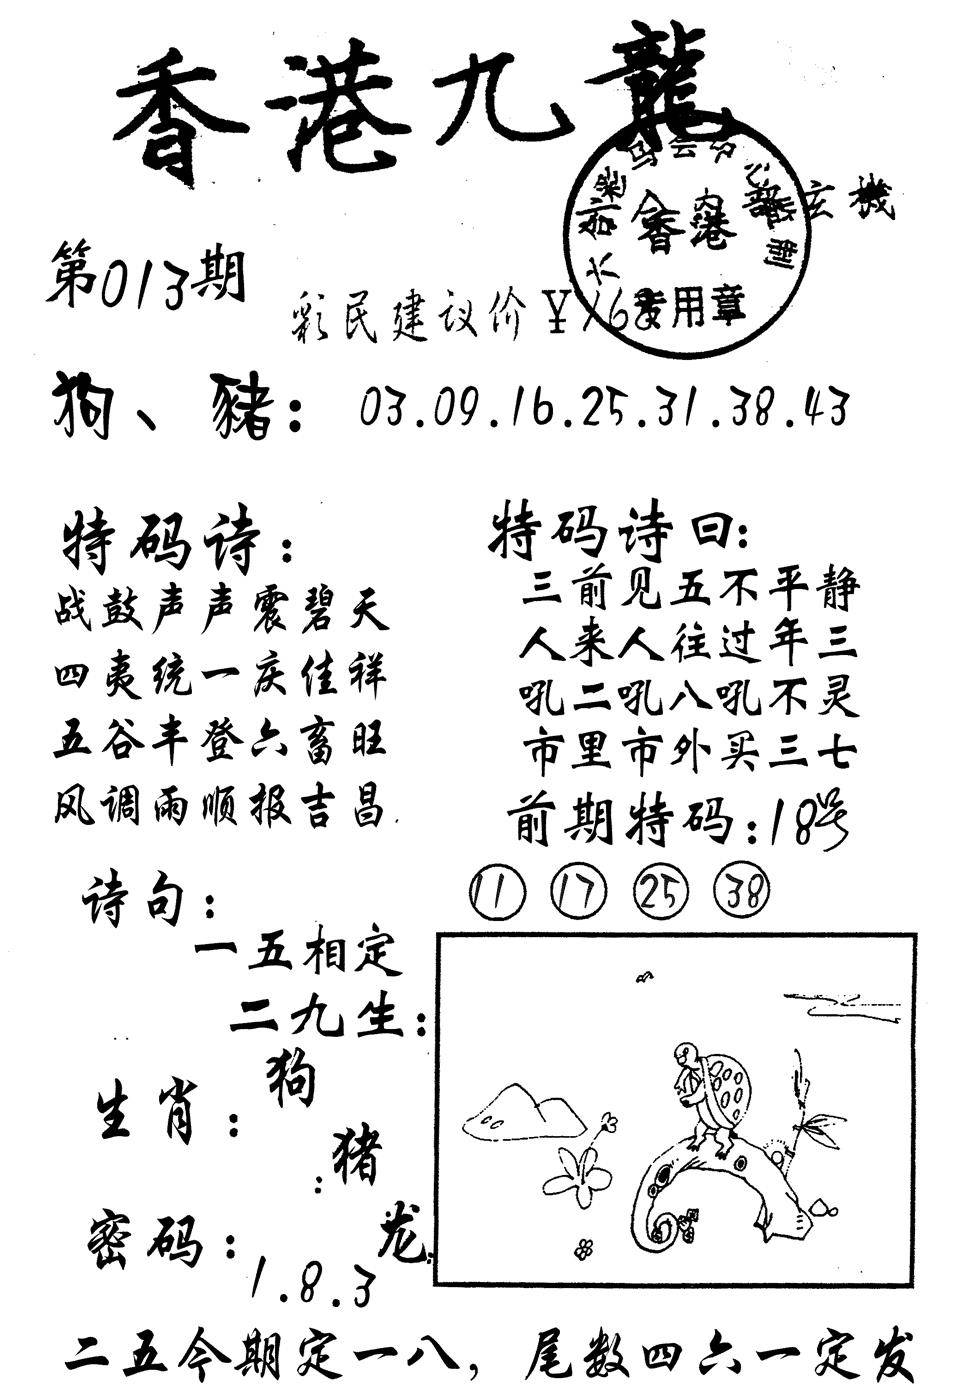 香港九龍
内部玄機
香港
专用章
第013期
彩民建议价￥168
狗、豬：03.09.16.25.31.38.43
特码诗：
战鼓声声震碧天
四夷统一庆佳祥
五谷丰登六畜旺
风调雨顺报吉昌.
特码诗曰：
三前见五不平静
人来人往过年三
吼二吼八吼不灵
市里市外买三七
前期特码：18号
11 17 25 38
诗句：
一五相定
二九生：
生肖：狗
猪
龙
密码：
1.8.3
二五今期定一八，尾数四六一定发